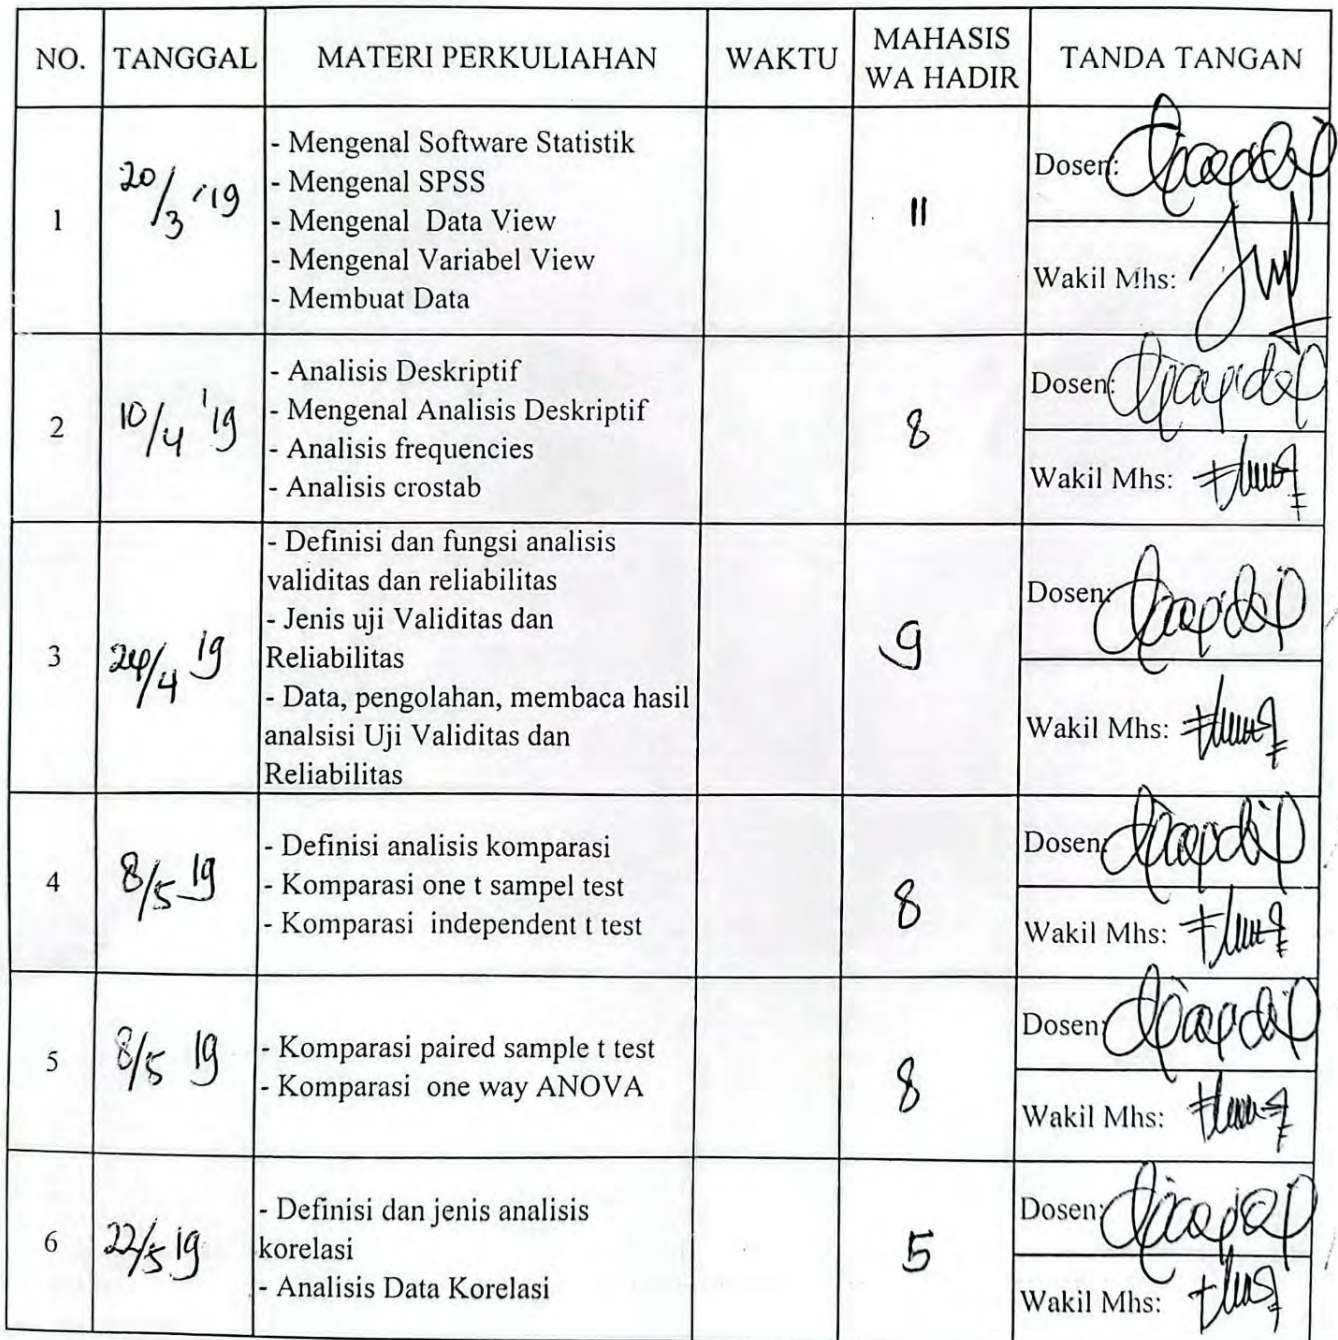 NO. TANGGAL MATERI PERKULIAHAN WAKTU MAHASIS TANDA TANGAN
WA HADIR
1 20/3 '19 11
- Mengenal Software Statistik
- Mengenal SPSS
- Mengenal Data View
- Mengenal Variabel View
- Membuat Data
Dosen:
Wakil Mhs:
2 10/4 '19 8
- Analisis Deskriptif
- Mengenal Analisis Deskriptif
- Analisis frequencies
- Analisis crostab
Dosen:
Wakil Mhs:
3 24/4 19 9
- Definisi dan fungsi analisis
validitas dan reliabilitas
- Jenis uji Validitas dan
Reliabilitas
- Data, pengolahan, membaca hasil
analsisi Uji Validitas dan
Reliabilitas
Dosen:
Wakil Mhs:
4 8/5 19 8
- Definisi analisis komparasi
- Komparasi one t sampel test
- Komparasi independent t test
Dosen:
Wakil Mhs:
5 8/5 19 8
- Komparasi paired sample t test
- Komparasi one way ANOVA
Dosen:
Wakil Mhs:
6 22/5 19 5
- Definisi dan jenis analisis
korelasi
- Analisis Data Korelasi
Dosen:
Wakil Mhs: